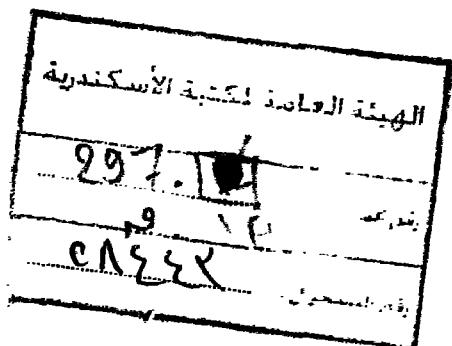 الهيئة العامة لمكتبة الأسكندرية
رقم 297.
رقم التسجيل ٢٨٤٤٢